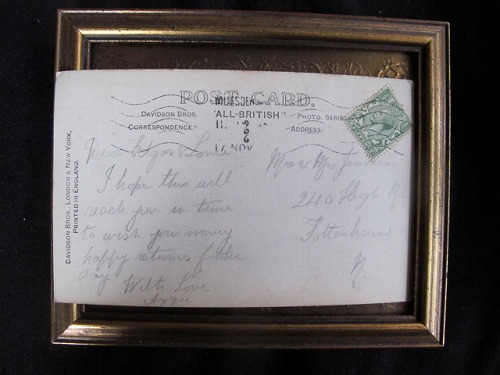 POST CARD.
DAVIDSON BROS.
"ALL-BRITISH"
PHOTO. SERIES
CORRESPONDENCE.
ADDRESS.
NOV
DAVIDSON BROS., LONDON & NEW YORK.
PRINTED IN ENGLAND.
I hope this will
reach you in time
to wish you many
happy returns of the
day
With Love
Mr & Mrs
240 High Rd
Tottenham
N.